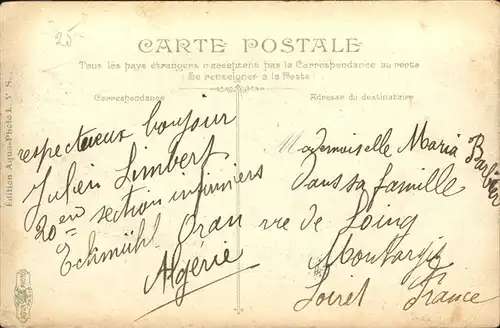 25
CARTE POSTALE
Tous les pays étrangers n'acceptent pas la Correspondance au recto
(Se renseigner à la Poste)
Correspondance
Adresse du destinataire
respectueux bonjour
Julien Limbert
20ème section infirmiers
Eckmühl Oran
Algérie
Mademoiselle Maria Barbier
dans sa famille
rue de Loing
Montargis
Loiret France
Édition Aqua-Photo L. V. S.